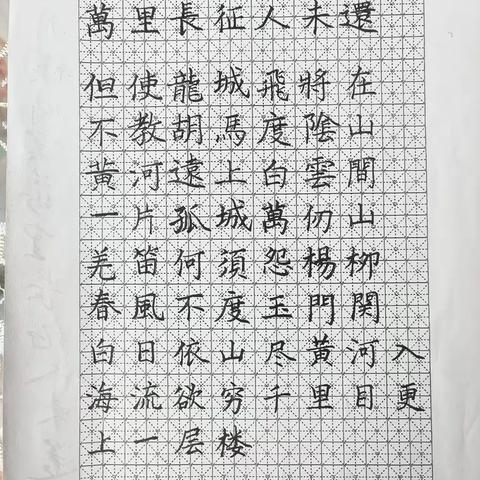 萬里長征人未還
但使龍城飛將在
不教胡馬度陰山
黃河遠上白雲間
一片孤城萬仞山
羌笛何須怨楊柳
春風不度玉門関
白日依山尽黃河入
海流欲穷千里目更
上一层楼